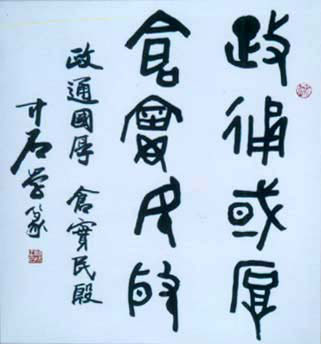 政通國厚
倉實民殷
政通國厚 倉實民殷
石学篆